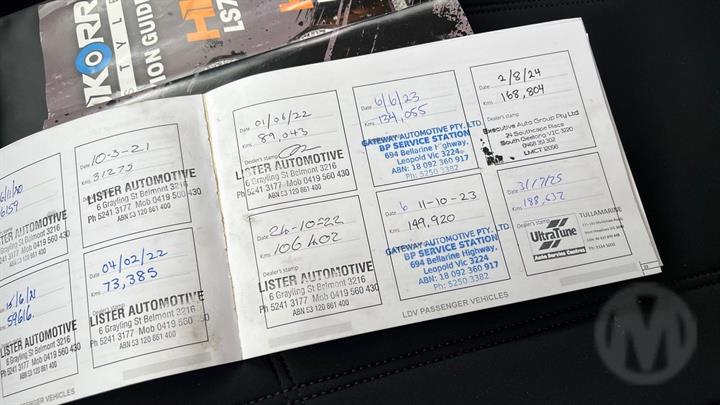 KORR
STYLE
ION GUIDE
H
LS7
6/11/20
6159
16/6/21
59616
LISTER AUTOMOTIVE
6 Grayling St Belmont 3216
Ph 5241 3177 Mob 0419 560 430
ABN 53 120 861 400
Date 10-3-21
Kms 31273
LISTER AUTOMOTIVE
6 Grayling St Belmont 3216
Ph 5241 3177 Mob 0419 560 430
ABN 53 120 861 400
Date 04/02/22
Kms 73,385
Dealer's stamp
LISTER AUTOMOTIVE
6 Grayling St Belmont 3216
Ph 5241 3177 Mob 0419 560 430
ABN 53 120 861 400
PASSENGER VEHICLES
Date 01/06/22
Kms 89,043
Dealer's stamp
LISTER AUTOMOTIVE
6 Grayling St Belmont 3216
Ph 5241 3177 Mob 0419 560 430
ABN 53 120 861 400
Date 26-10-22
Kms 106402
Dealer's stamp
LISTER AUTOMOTIVE
6 Grayling St Belmont 3216
Ph 5241 3177 Mob 0419 560 430
ABN 53 120 861 400
Date 6/6/23
Kms 134,055
GATEWAY AUTOMOTIVE PTY. LTD.
BP SERVICE STATION
694 Bellarine Highway,
Leopold Vic 3224
ABN: 18 092 360 917
Ph: 5250 3382
Date 11-10-23
Kms 149,920
GATEWAY AUTOMOTIVE PTY. LTD.
BP SERVICE STATION
694 Bellarine Highway,
Leopold Vic 3224
ABN: 18 092 360 917
Ph: 5250 3382
LDV PASSENGER VEHICLES
Date 2/8/24
Kms 168,804
Dealer's stamp
Executive Auto Group Pty Ltd
24 Southcape Place
South Geelong VIC 3220
0468 391 302
LMCT 12098
Date 3/17/25
Kms 188,632
Dealer's stamp
UltraTune
Auto Service Centres
TULLAMARINE
M